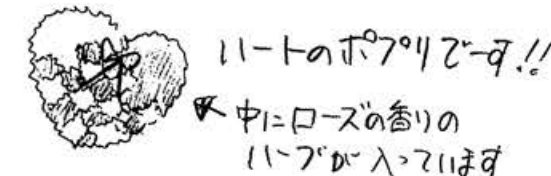 ハートのポプリでーす!!
中にローズの香りの
ハーブが入っています